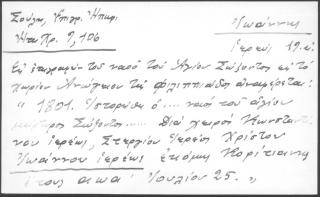 Σούλη, Ἐπιγρ. Ἠπειρ.
Ἠπ. Χρ. 9, 106
Ἰωάννης
ἱερεύς 19 αἰ.
Εἰς ἐπιγραφὴν τοῦ ναοῦ τοῦ Ἁγίου Σώζοντος εἰς τὸ
χωρίον Ἀνώγειον τῆς Φιλιππιάδος ἀναφέρεται:
" 1801. Ἱστορήθη ὁ .... ναὸς τοῦ ἁγίου
μάρτυρος Σώζοντος..... Διὰ χειρὸς Κωνσταντί-
νου ἱερέως, Στεργίου ἱερέως Χρίστου
Ἰωάννου ἱερέως ἐκ κώμης Κορίτιανης
ἔτους αωα΄ Ἰουλίου 25. "